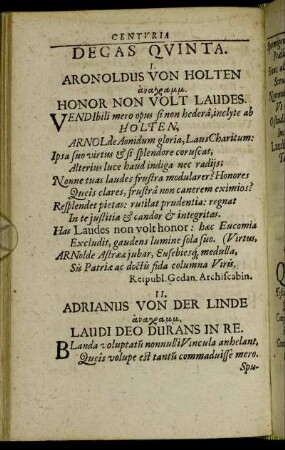 CENTVRIA
DECAS QVINTA.
I.
ARONOLDUS VON HOLTEN
ἀναγραμμ.
HONOR NON VOLT LAUDES.
VENDIbili mero opus si non hederâ, inclyte ab
HOLTEN,
ARNOLde Aonidum gloria, Laus Charitum:
Ipsa suo virtus & si splendore coruscat,
Alterius luce haud indiga nec radijs:
Nonne tuas laudes frustrà modularer? Honores
Queis clares, frustrà non canterem eximios?
Resplendet pietas: rutilat prudentia: regnat
In te justitia & candor & integritas.
Has Laudes non volt honor: hæc Eucomia
Excludit, gaudens lumine sola suo. (Virtus,
ARNolde Astrææ jubar, Eusebiesq́; medulla,
Sis Patriæ ac doctis fida columna Viris.
Reipubl. Gedan. Archiscabin.
II.
ADRIANUS VON DER LINDE
ἀναγραμμ.
LAUDI DEO DURANS IN RE.
BLanda voluptatũ nonnulli Vincula anhelant,
Queis volupe est tantũ commaduisse mero.
Spu-